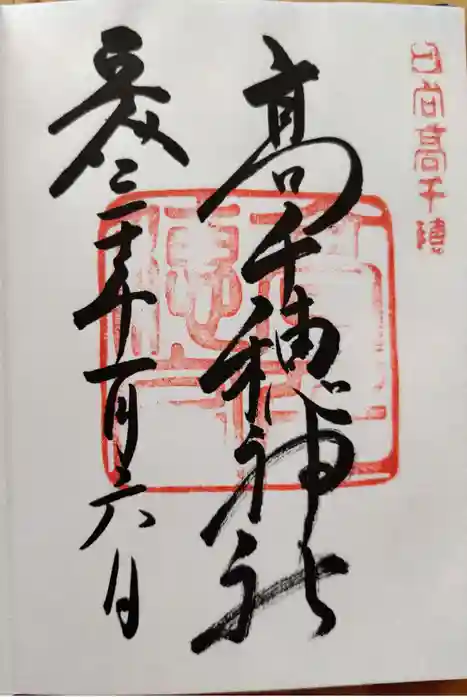 日向高千穂
高千穂神社
平成三十年一月六日